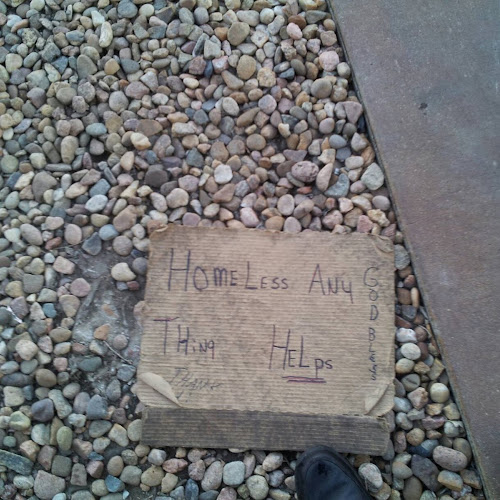 HOMELESS ANY
THING HELPS
THANK
GOD BLESS